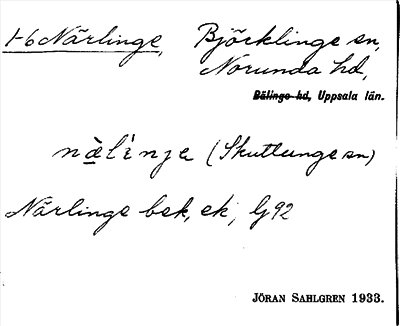 1-6 Närlinge, Björklinge sn,
Norunda hd,
Bälinge hd, Uppsala län.
nä̀lińja (Skuttunge sn)
Närlinge bek, ek, Lj 92
JÖRAN SAHLGREN 1933.